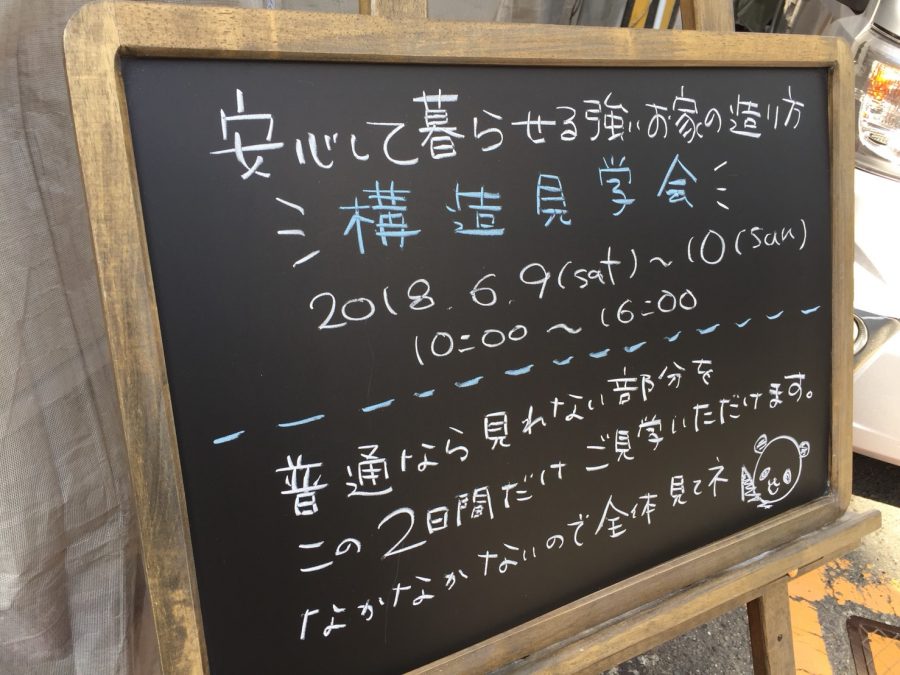 安心して暮らせる強いお家の造り方
構造見学会
2018.6.9(sat)~10(sun)
10:00~16:00
普通なら見れない部分を
この2日間だけご見学いただけます。
なかなかないので全体見てネ